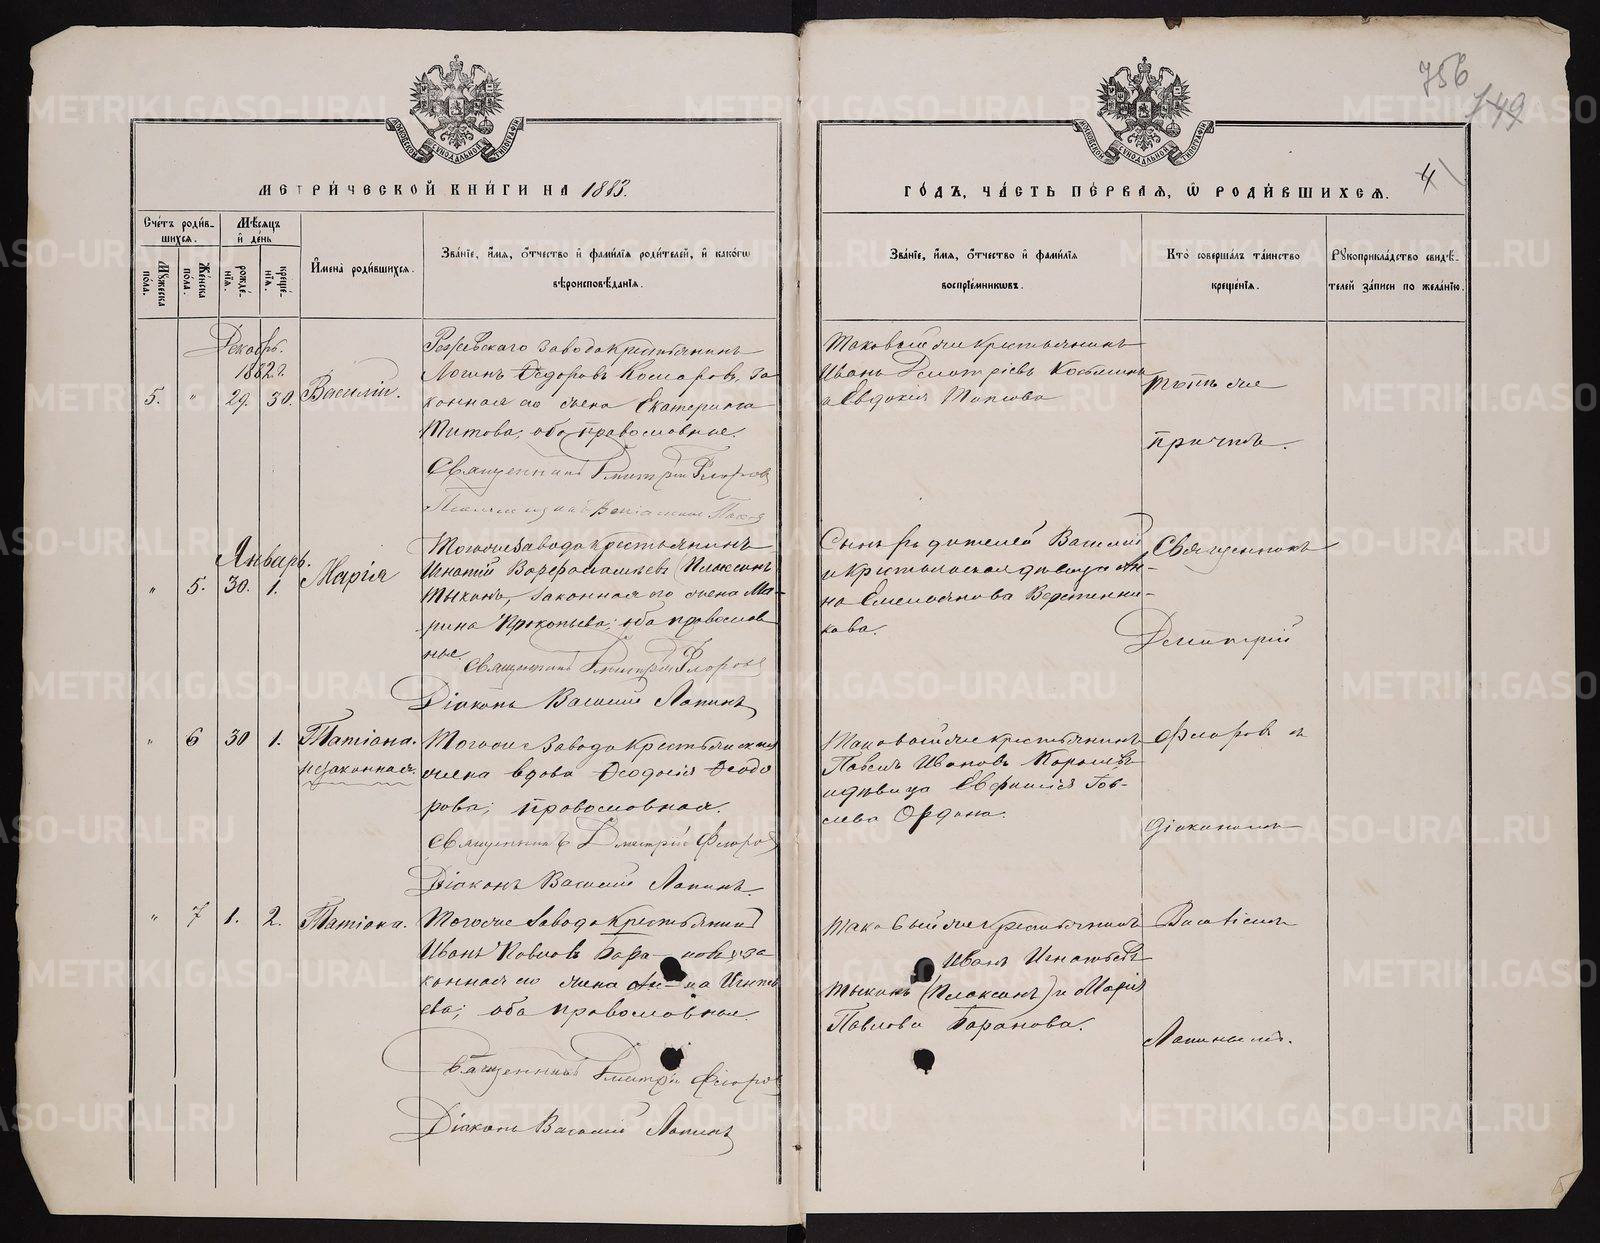 756
149
4
МЕТРИ́ЧЕСКОЙ КНИ́ГИ НА 1883.
ГО́ДЪ, ЧА́СТЬ ПЕ́РВАЯ, Ѡ РОДИ́ВШИХСЯ.
Сче́тъ роди́в-
шихся.
Мѣ́сяцъ
и҆ де́нь
Му́жеска
по́ла.
Же́нска
по́ла.
рожде́-
нїя.
креще́-
нїя.
И҆мена̀ роди́вшихся.
Зва́нїе, и҆́мя, ѻ҆́тчество и҆ фами́лїя роди́телей, и҆ како́гѡ
вѣроисповѣ́данїя.
Зва́нїе, и҆́мя, ѻ҆́тчество и҆ фами́лїя
воспрїе́мникѡвъ.
Кто̀ соверша́лъ та́инство
креще́нїя.
Рꙋкоприкла́дство свидѣ́-
телей за́писи по жела́нїю.
Декабрь.
1882 г.
5. " 29. 30. Василій.
Режевскаго завода крестьянинъ
Логинъ Ѳедоровъ Комаровъ, за-
конная его жена Екатерина
Титова; оба православные.
Священникъ Дмитрій Флоровъ
Таковой же крестьянинъ
Иванъ Дмитріевъ
и Евдокія Титова
Тотъ же
причтъ.
Январь.
" 5. 30. 1. Марія
Тогоже завода крестьянинъ
Игнатій Варфоломѣевъ (Плаксинъ
Тыкинъ, законная его жена Ма-
рина Прокопьева; оба православ
ные.
Священникъ Дмитрій Флоровъ
Діаконъ Василій Лапинъ
Сынъ родителей Василій
и крестьянская дѣвица Ан-
на Емельянова
кова.
Священникъ
Димитрій
" 6 30 1. Татіана.
незаконная.
Тогоже завода крестьянская
жена вдова Ѳеодосія Ѳеодо
рова; православная.
Священникъ Дмитрій Флоровъ
Діаконъ Василій Лапинъ.
Таковой же крестьянинъ
Павелъ Ивановъ
и дѣвица Евфимія
Флоровъ съ
діакономъ
" 7 1. 2. Татіана.
Тогоже завода крестьянинъ
Иванъ Павловъ Барановъ, за
конная его жена Анна Игнать
ева; оба православные.
Священникъ Дмитрій Флоровъ
Діаконъ Василій Лапинъ
Таковый же крестьянинъ
Иванъ Игнатьевъ
Тыкинъ (Плаксинъ) и Марія
Павлова Баранова.
Василіемъ
Лапинымъ.
METRIKI.GASO-URAL.RU